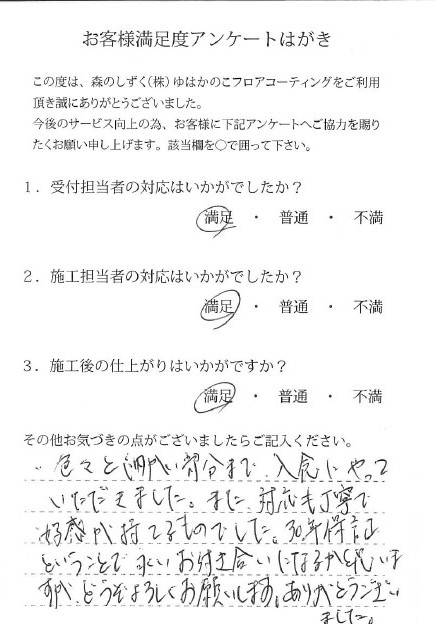 お客様満足度アンケートはがき
この度は、森のしずく(株)ゆはかのこフロアコーティングをご利用
頂き誠にありがとうございました。
今後のサービス向上の為、お客様に下記アンケートへご協力を賜り
たくお願い申し上げます。該当欄を○で囲って下さい。
1．受付担当者の対応はいかがでしたか？
満足 ・ 普通 ・ 不満
2．施工担当者の対応はいかがでしたか？
満足 ・ 普通 ・ 不満
3．施工後の仕上がりはいかがですか？
満足 ・ 普通 ・ 不満
その他お気づきの点がございましたらご記入ください。
・色々と細かい部分まで、入念にやって
いただきました。また、対応も丁寧で
好感が持てるものでした。30年保証
ということで永いお付き合いになるかと思いま
すが、どうぞよろしくお願いします。ありがとうござい
ました。